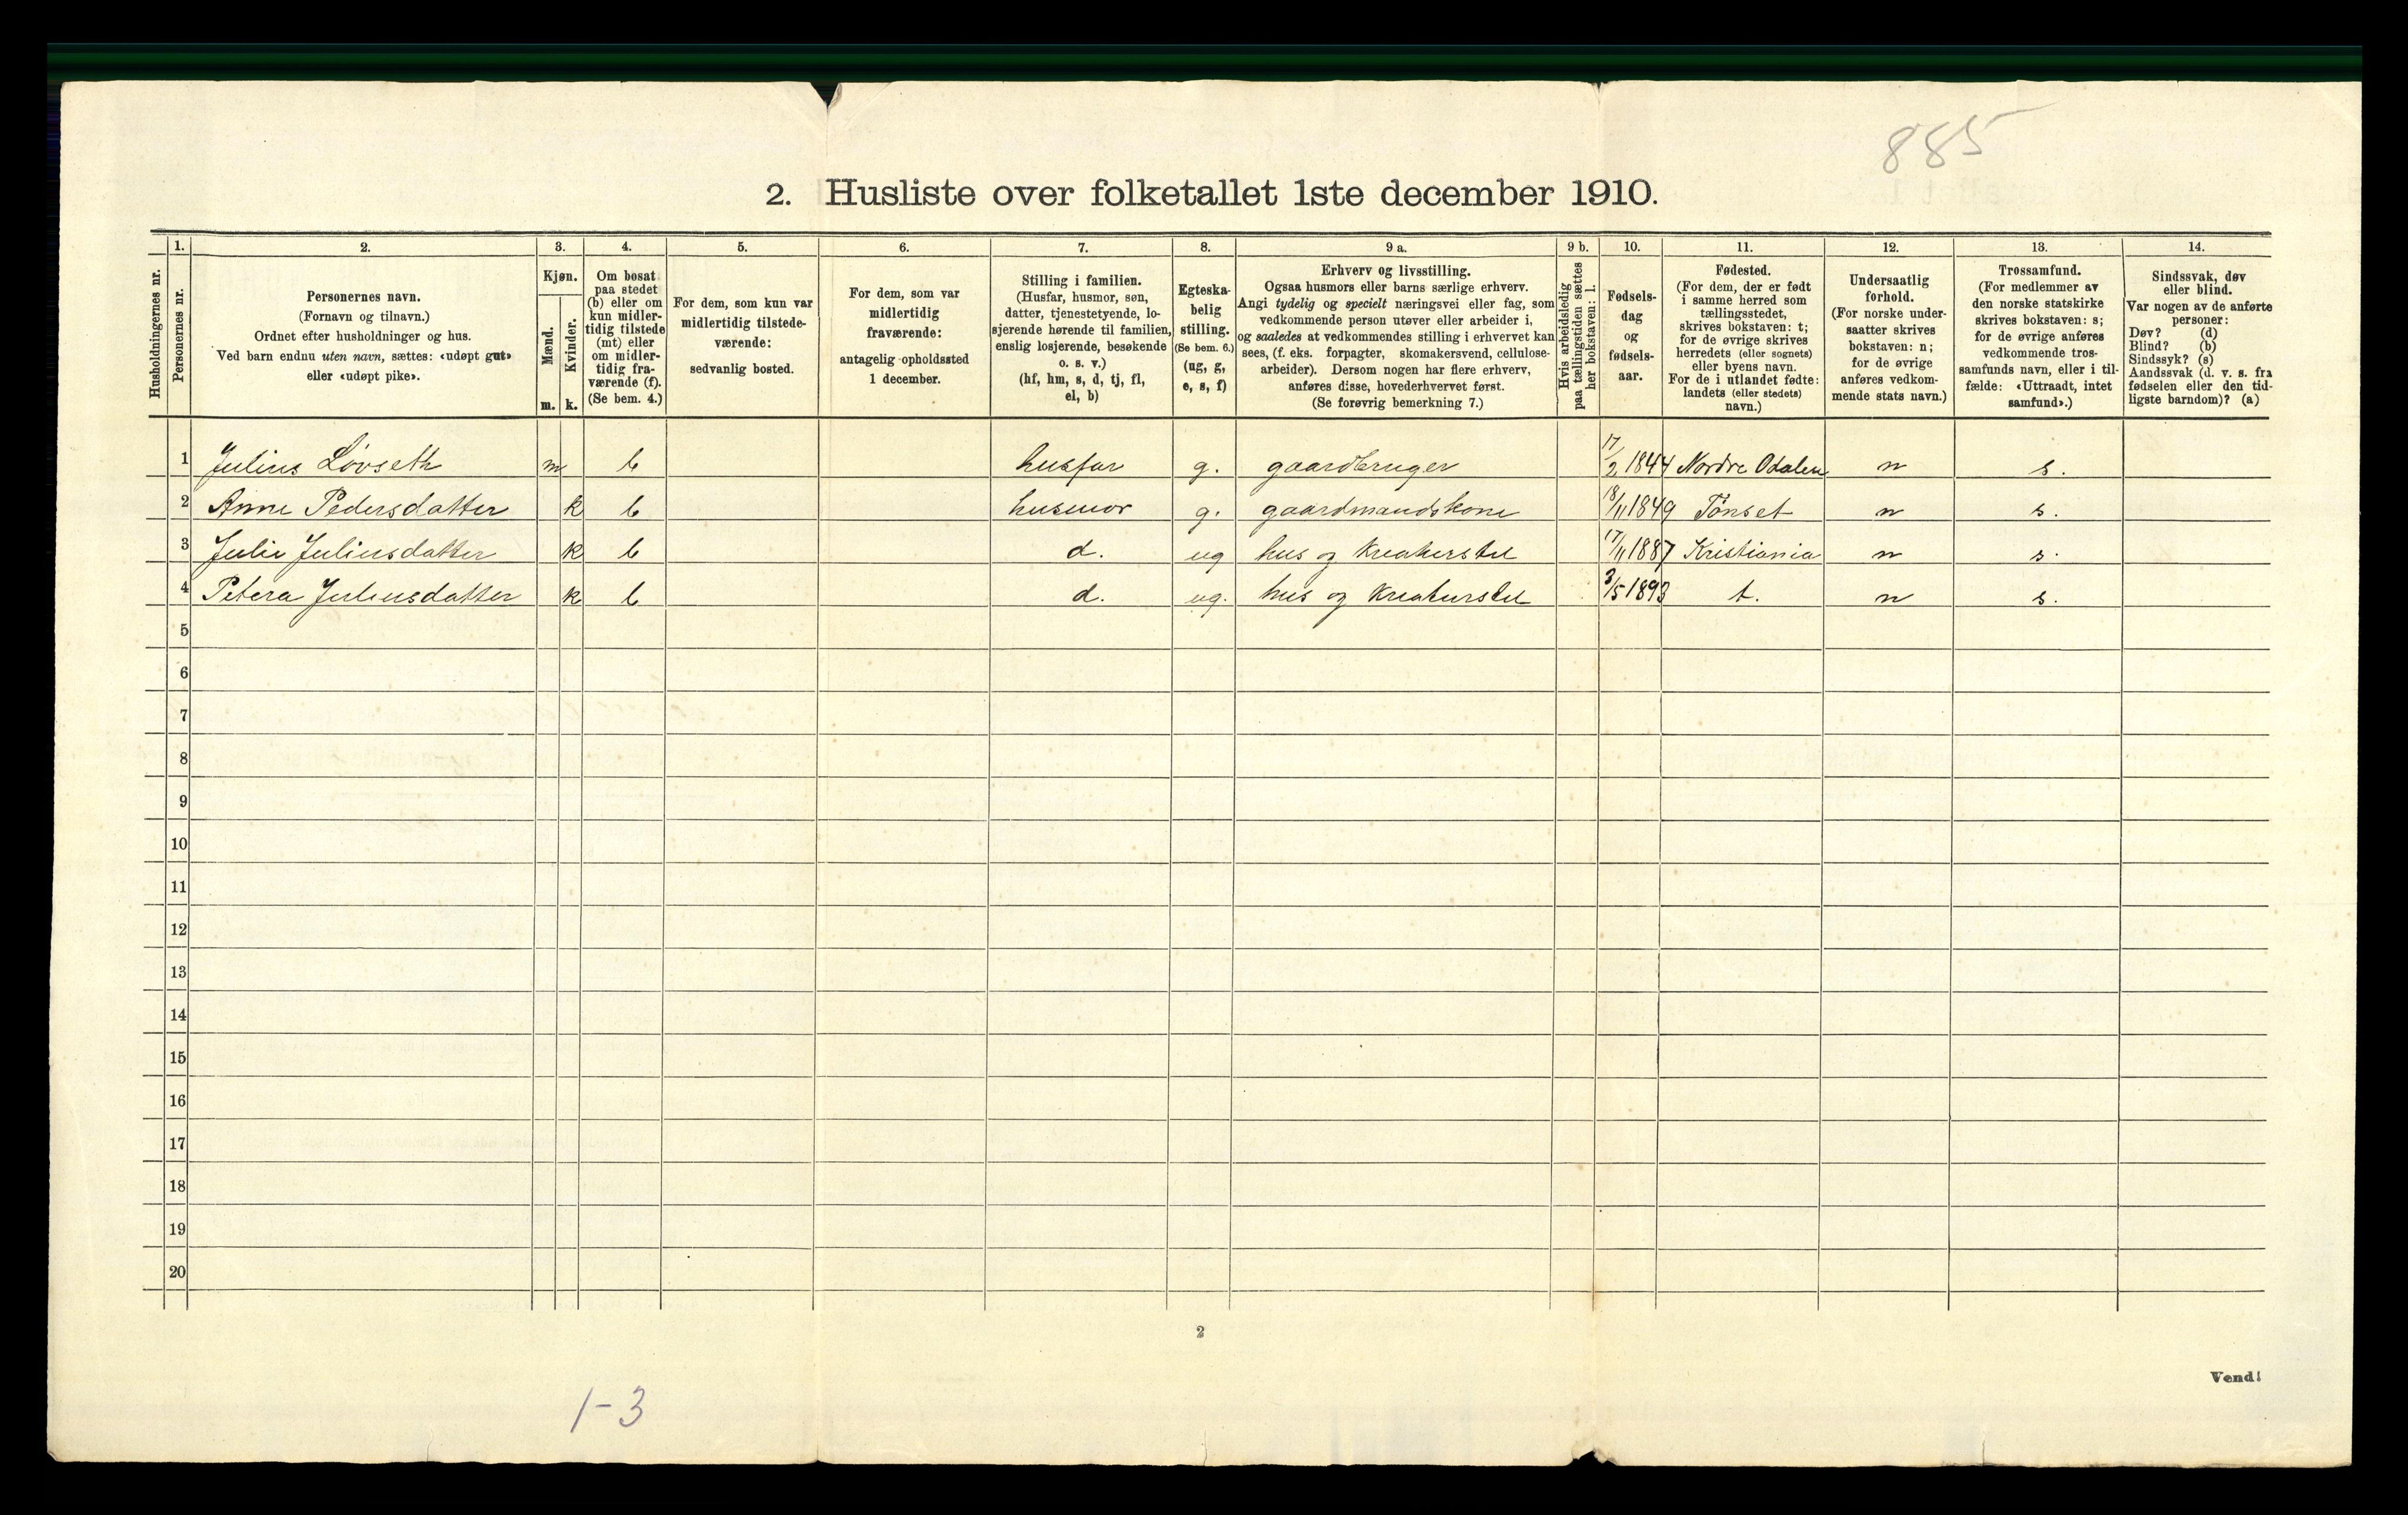 885
2. Husliste over folketallet 1ste december 1910.
Husholdningernes nr.
1.
Personernes nr.
2.
Personernes navn.
(Fornavn og tilnavn.)
Ordnet efter husholdninger og hus.
Ved barn endnu uten navn, sættes: «udøpt gut»
eller «udøpt pike».
3.
Kjøn.
Mænd.
m.
Kvinder.
k.
4.
Om bosat
paa stedet
(b) eller om
kun midler-
tidig tilstede
(mt) eller
om midler-
tidig fra-
værende (f).
(Se bem. 4.)
5.
For dem, som kun var
midlertidig tilstede-
værende:
sedvanlig bosted.
6.
For dem, som var
midlertidig
fraværende:
antagelig opholdssted
1 december.
7.
Stilling i familien.
(Husfar, husmor, søn,
datter, tjenestetyende, lo-
sjerende hørende til familien,
enslig losjerende, besøkende
o. s. v.)
(hf, hm, s, d, tj, fl,
el, b)
8.
Egteska-
belig
stilling.
(Se bem. 6.)
(ug, g,
e, s, f)
9 a.
Erhverv og livsstilling.
Ogsaa husmors eller barns særlige erhverv.
Angi tydelig og specielt næringsvei eller fag, som
vedkommende person utøver eller arbeider i,
og saaledes at vedkommendes stilling i erhvervet kan
sees, (f. eks. forpagter, skomakersvend, cellulose-
arbeider). Dersom nogen har flere erhverv,
anføres disse, hovederhvervet først.
(Se forøvrig bemerkning 7.)
9 b.
Hvis arbeidsledig
paa tællingstiden sættes
her bokstaven: l.
10.
Fødsels-
dag
og
fødsels-
aar.
11.
Fødested.
(For dem, der er født
i samme herred som
tællingsstedet,
skrives bokstaven: t;
for de øvrige skrives
herredets (eller sognets)
eller byens navn.
For de i utlandet fødte:
landets (eller stedets)
navn.)
12.
Undersaatlig
forhold.
(For norske under-
saatter skrives
bokstaven: n;
for de øvrige
anføres vedkom-
mende stats navn.)
13.
Trossamfund.
(For medlemmer av
den norske statskirke
skrives bokstaven: s;
for de øvrige anføres
vedkommende tros-
samfunds navn, eller i til-
fælde: «Uttraadt, intet
samfund».)
14.
Sindssvak, døv
eller blind.
Var nogen av de anførte
personer:
Døv? (d)
Blind? (b)
Sindssyk? (s)
Aandssvak (d. v. s. fra
fødselen eller den tid-
ligste barndom)? (a)
1 Julius Lövseth m b husfar g. gaardbruger 17/2 1844 Nordre Odalen n s.
2 Anne Pedersdatter k b husmor g. gaardmandskone 18/11 1849 Tönset n s.
3 Julie Juliusdatter k b d. ug hus og kreaturstel 17/11 1887 Kristiania n s.
4 Petera Juliusdatter k b d. ug. hus og kreaturstel 3/5 1893 t. n s.
5
6
7
8
9
10
11
12
13
14
15
16
17
18
19
20
2
Vend!
1-3